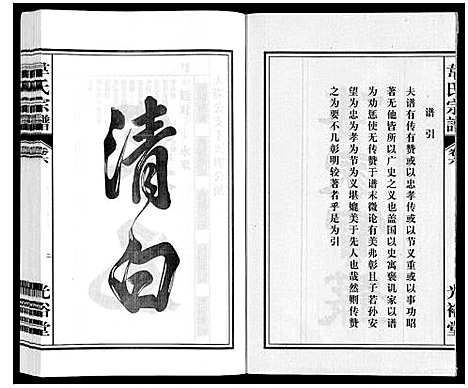 韋氏宗譜
卷六
光裕堂
譜引
夫谱有传有赞或以忠孝传或以节义重或以事功昭
著无他皆所以广史之义也盖国以史寓褒讥家以谱
为劝惩使无传赞于谱末微论有美弗彰且子若孙安
望为忠为孝为节为义堪媲美于先人也哉然则传赞
之为要不几彰明较著者乎是为引
清白
二
韋氏宗譜
卷六
光裕堂